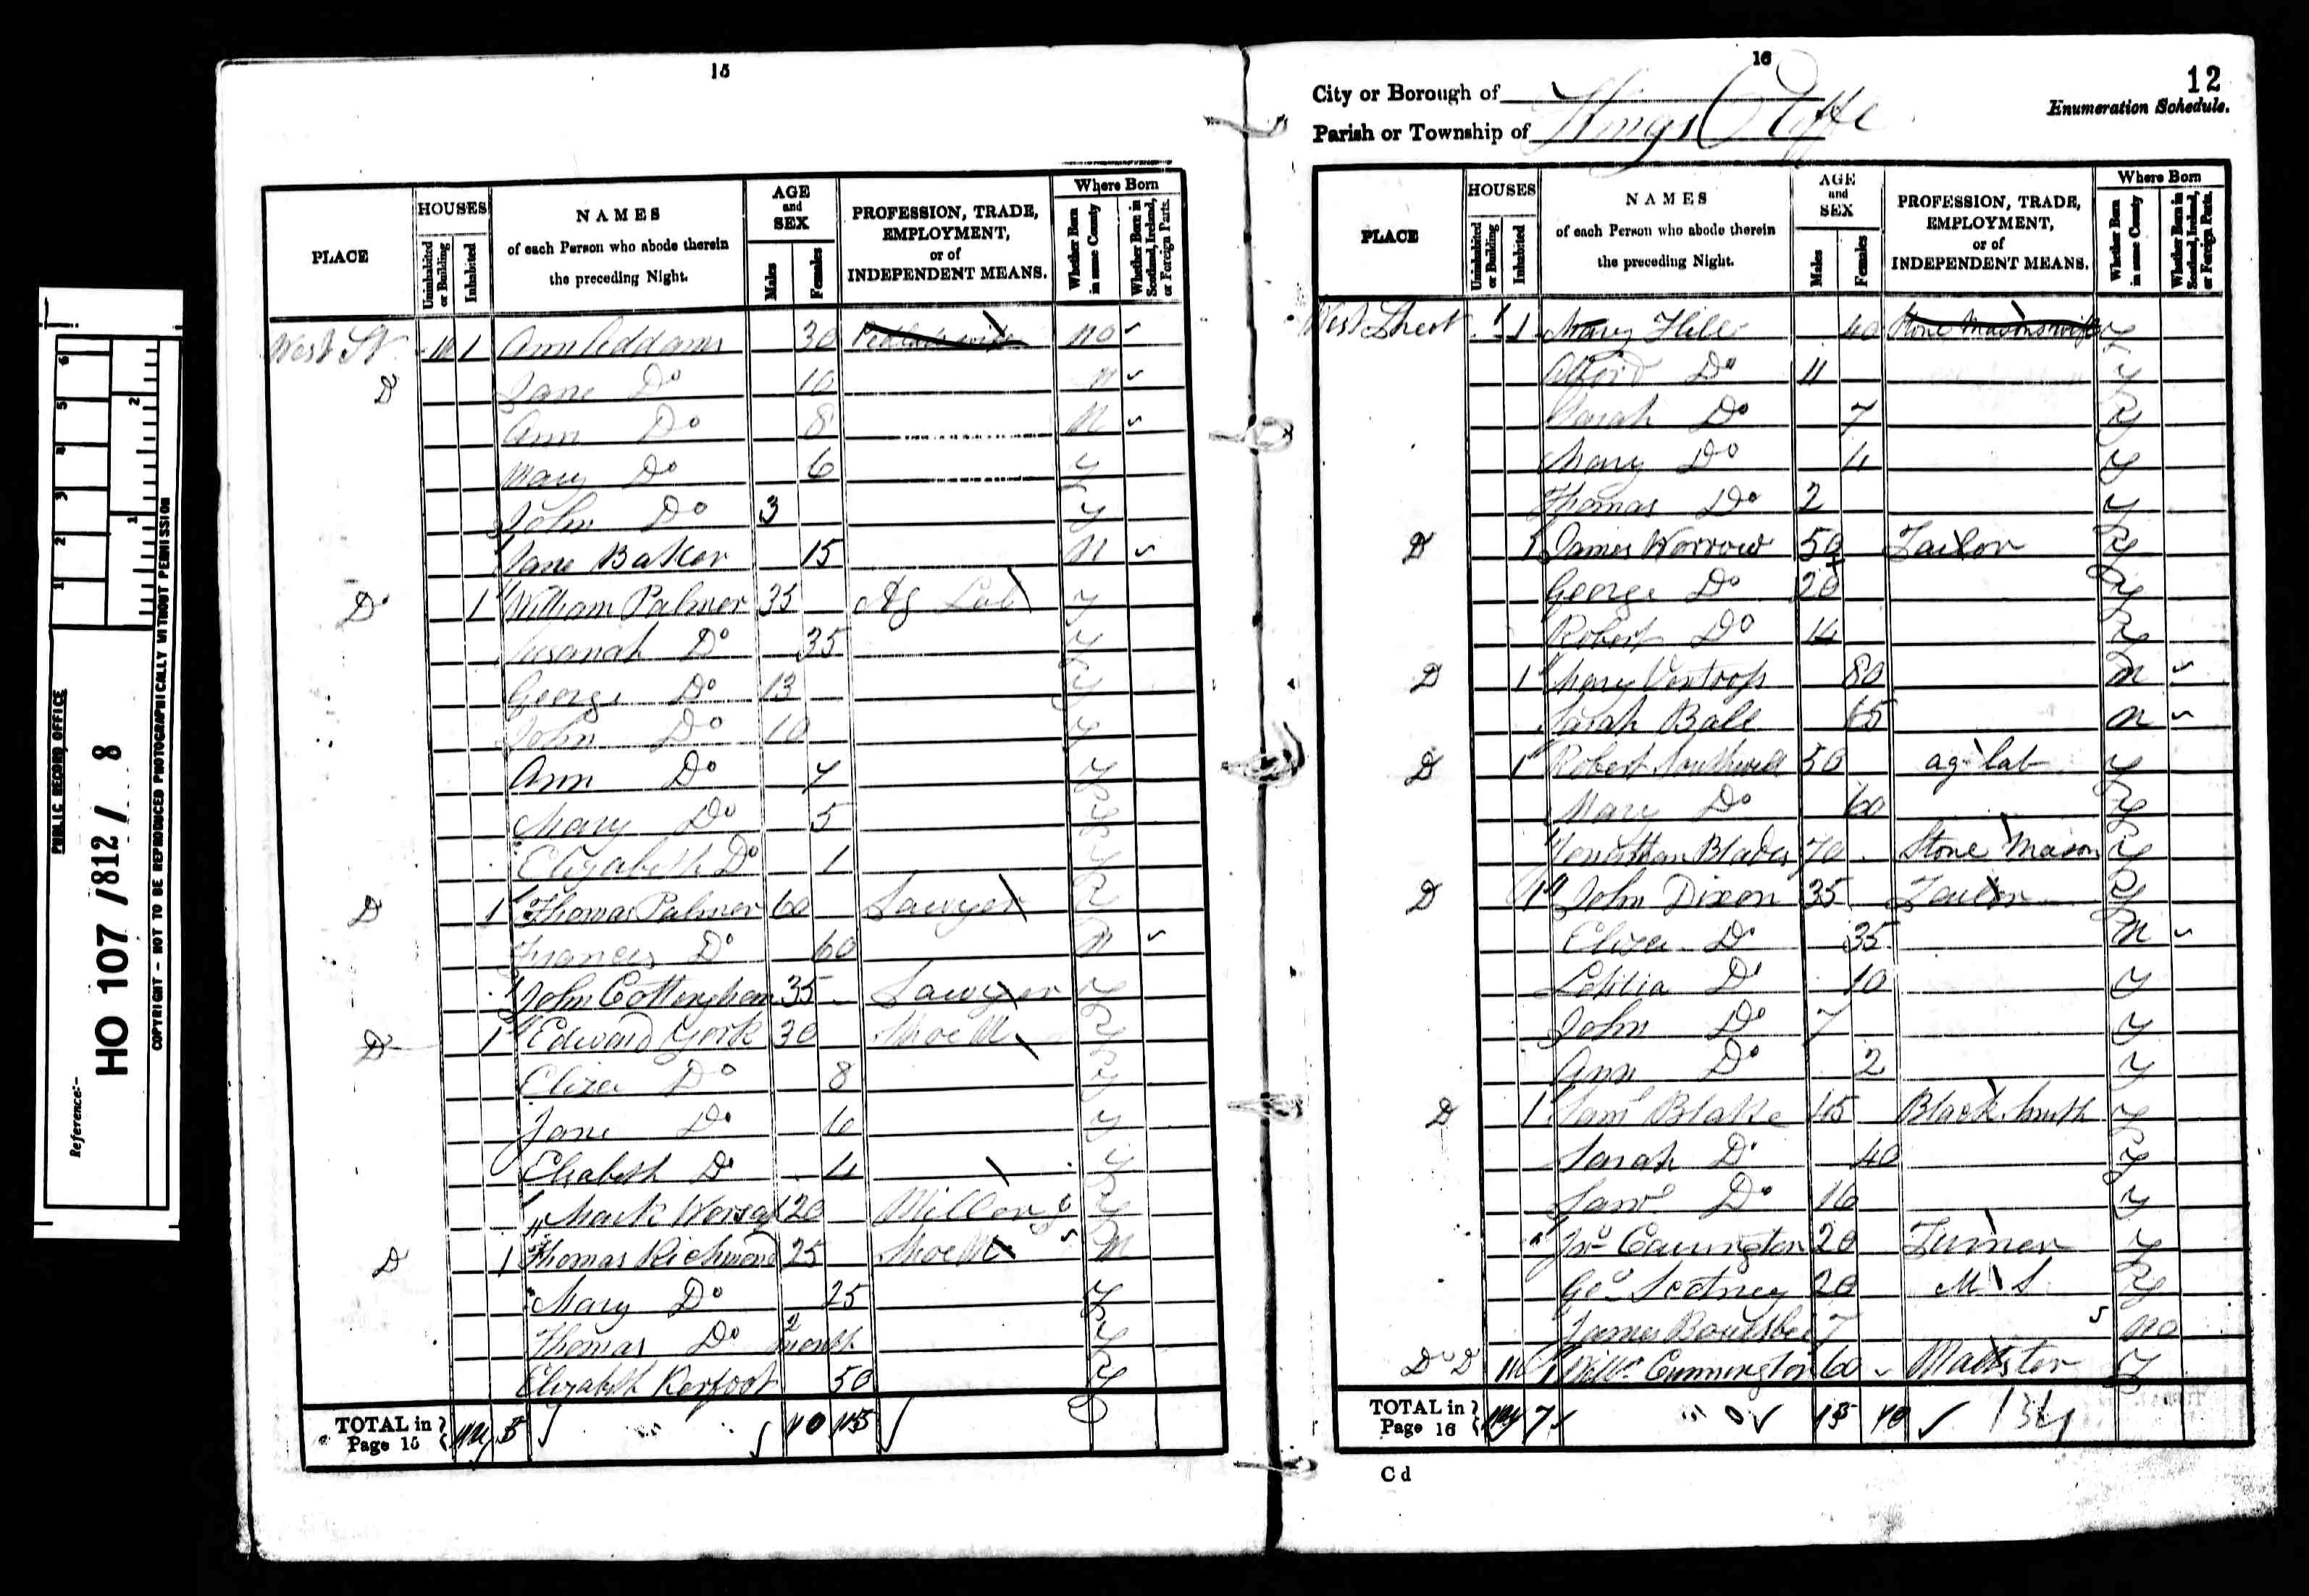 PUBLIC RECORD OFFICE
Reference:-
HO 107 /812 / 8
COPYRIGHT - NOT TO BE REPRODUCED PHOTOGRAPHICALLY WITHOUT PERMISSION
1 2 3 4 5 6
1 2
15
PLACE
HOUSES
Uninhabited or Building
Inhabited
NAMES
of each Person who abode therein
the preceding Night.
AGE
and
SEX
Males
Females
PROFESSION, TRADE,
EMPLOYMENT,
or of
INDEPENDENT MEANS.
Where Born
Whether Born in same County
Whether Born in Scotland, Ireland, or Foreign Parts.
West St 1 Ann Addams 30 no
D Jane Do 10 N
Ann Do 8 N
Mary Do 6 Y
John Do 3 Y
Jane Baker 15 N
Do 1 William Palmer 35 Ag Lab Y
Susanah Do 35 Y
George Do 13 Y
John Do 10 Y
Ann Do 7 Y
Mary Do 5 Y
Elizabeth Do 1 Y
D 1 Thomas Palmer 60 Sawyer Y
Frances Do 60 N
John Cottingham 35 Sawyer Y
D 1 Edward York 30 Shoe M Y
Eliza Do 8 Y
Jane Do 6 Y
Elisabeth Do 4 Y
Mark 20 Miller Y
D 1 Thomas Richmond 25 Shoe M N
Mary Do 25 Y
Thomas Do 2 month Y
Elizabeth Kerfoot 50 Y
TOTAL in Page 15 5 10 15
16
12
City or Borough of
Enumeration Schedule.
Parish or Township of Kings Cliffe
PLACE
HOUSES
Uninhabited or Building
Inhabited
NAMES
of each Person who abode therein
the preceding Night.
AGE
and
SEX
Males
Females
PROFESSION, TRADE,
EMPLOYMENT,
or of
INDEPENDENT MEANS.
Where Born
Whether Born in same County
Whether Born in Scotland, Ireland, or Foreign Parts.
West Street 1 Mary Hill 40 Stone Masons wife Y
Do 11 Y
Sarah Do 7 Y
Mary Do 4 Y
Thomas Do 2 Y
D 1 James Worrow 50 Tailor Y
George Do 20 Y
Robert Do 14 Y
D 1 Mary 80 N
Sarah Ball 65 N
D 1 Robert Southwell 50 ag lab Y
Mary Do 60 Y
Jonathan Blades 70 Stone Mason Y
D 1 John Dixon 35 Tailor Y
Eliza Do 35 N
Letitia Do 10 Y
John Do 7 Y
Ann Do 2 Y
D 1 Saml Blake 45 Black Smith Y
Sarah Do 40 Y
Saml Do 16 Y
Jno Carrington 20 Turner Y
Geo 20 M S Y
James 7 No
Do D Willm Cunnington 60 Maltster Y
TOTAL in Page 16 7 15 10
C d